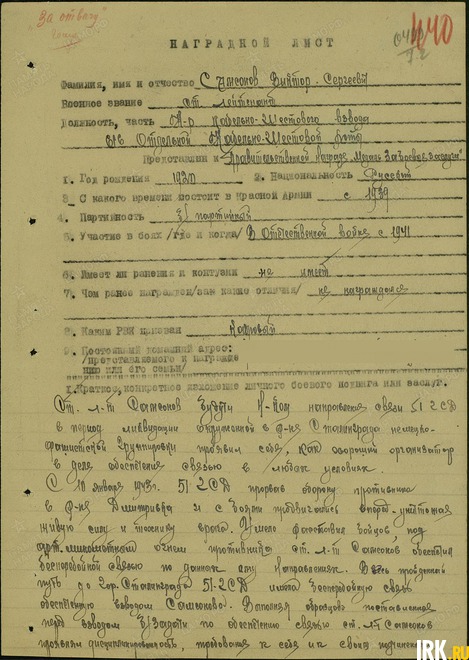 "За отвагу"
440
НАГРАДНОЙ ЛИСТ
Фамилия, имя и отчество Самсонов Виктор Сергеевич
Военное звание ст. лейтенант
Должность, часть к-р кабельно-шестового взвода
Отдельной кабельно-шестовой роты
Представлен к Правительственной награде Медаль "За боевые заслуги"
1. Год рождения 2. Национальность Русский
3. С какого времени состоит в Красной Армии с 1939
4. Партийность б/партийный
5. Участие в боях /где и когда/ В Отечественной войне с 1941
6. Имеет ли ранения и контузии не имеет
7. Чем ранее награжден/за какие отличия/ не награждался
8. Каким РВК призван Кадровый
9. Постоянный домашний адрес:
/представляемого к награде
нию или его семьи/
I. Краткое, конкретное изложение личного боевого подвига или заслуг.
Ст. л-т Самсонов будучи н-ком направления связи 51 ГСД
в период ликвидации окруженной в р-не Сталинграда немецко-
фашистской группировки проявил себя, как хороший организатор
в деле обеспечения связью в любых условиях.
С 10 января 1943г. 51 ГСД прорвав оборону противника
в р-не Дмитриевка и с боями продвигались вперед уничтожая
живую силу и технику врага. Умело расставив бойцов, под
арт. минометным огнем противника ст. л-т Самсонов обеспечил
бесперебойной связью по данному ему направлению. Весь пройденный
путь до гор. Сталинграда 51 ГСД имела бесперебойную связь
обеспеченную взводом Самсонова. Выполняя образцово поставленные
перед взводом задачи по обеспечению связью ст. л-т Самсонов
проявлял дисциплинированность, требователен к себе и к своим подчиненным
IRK.RU